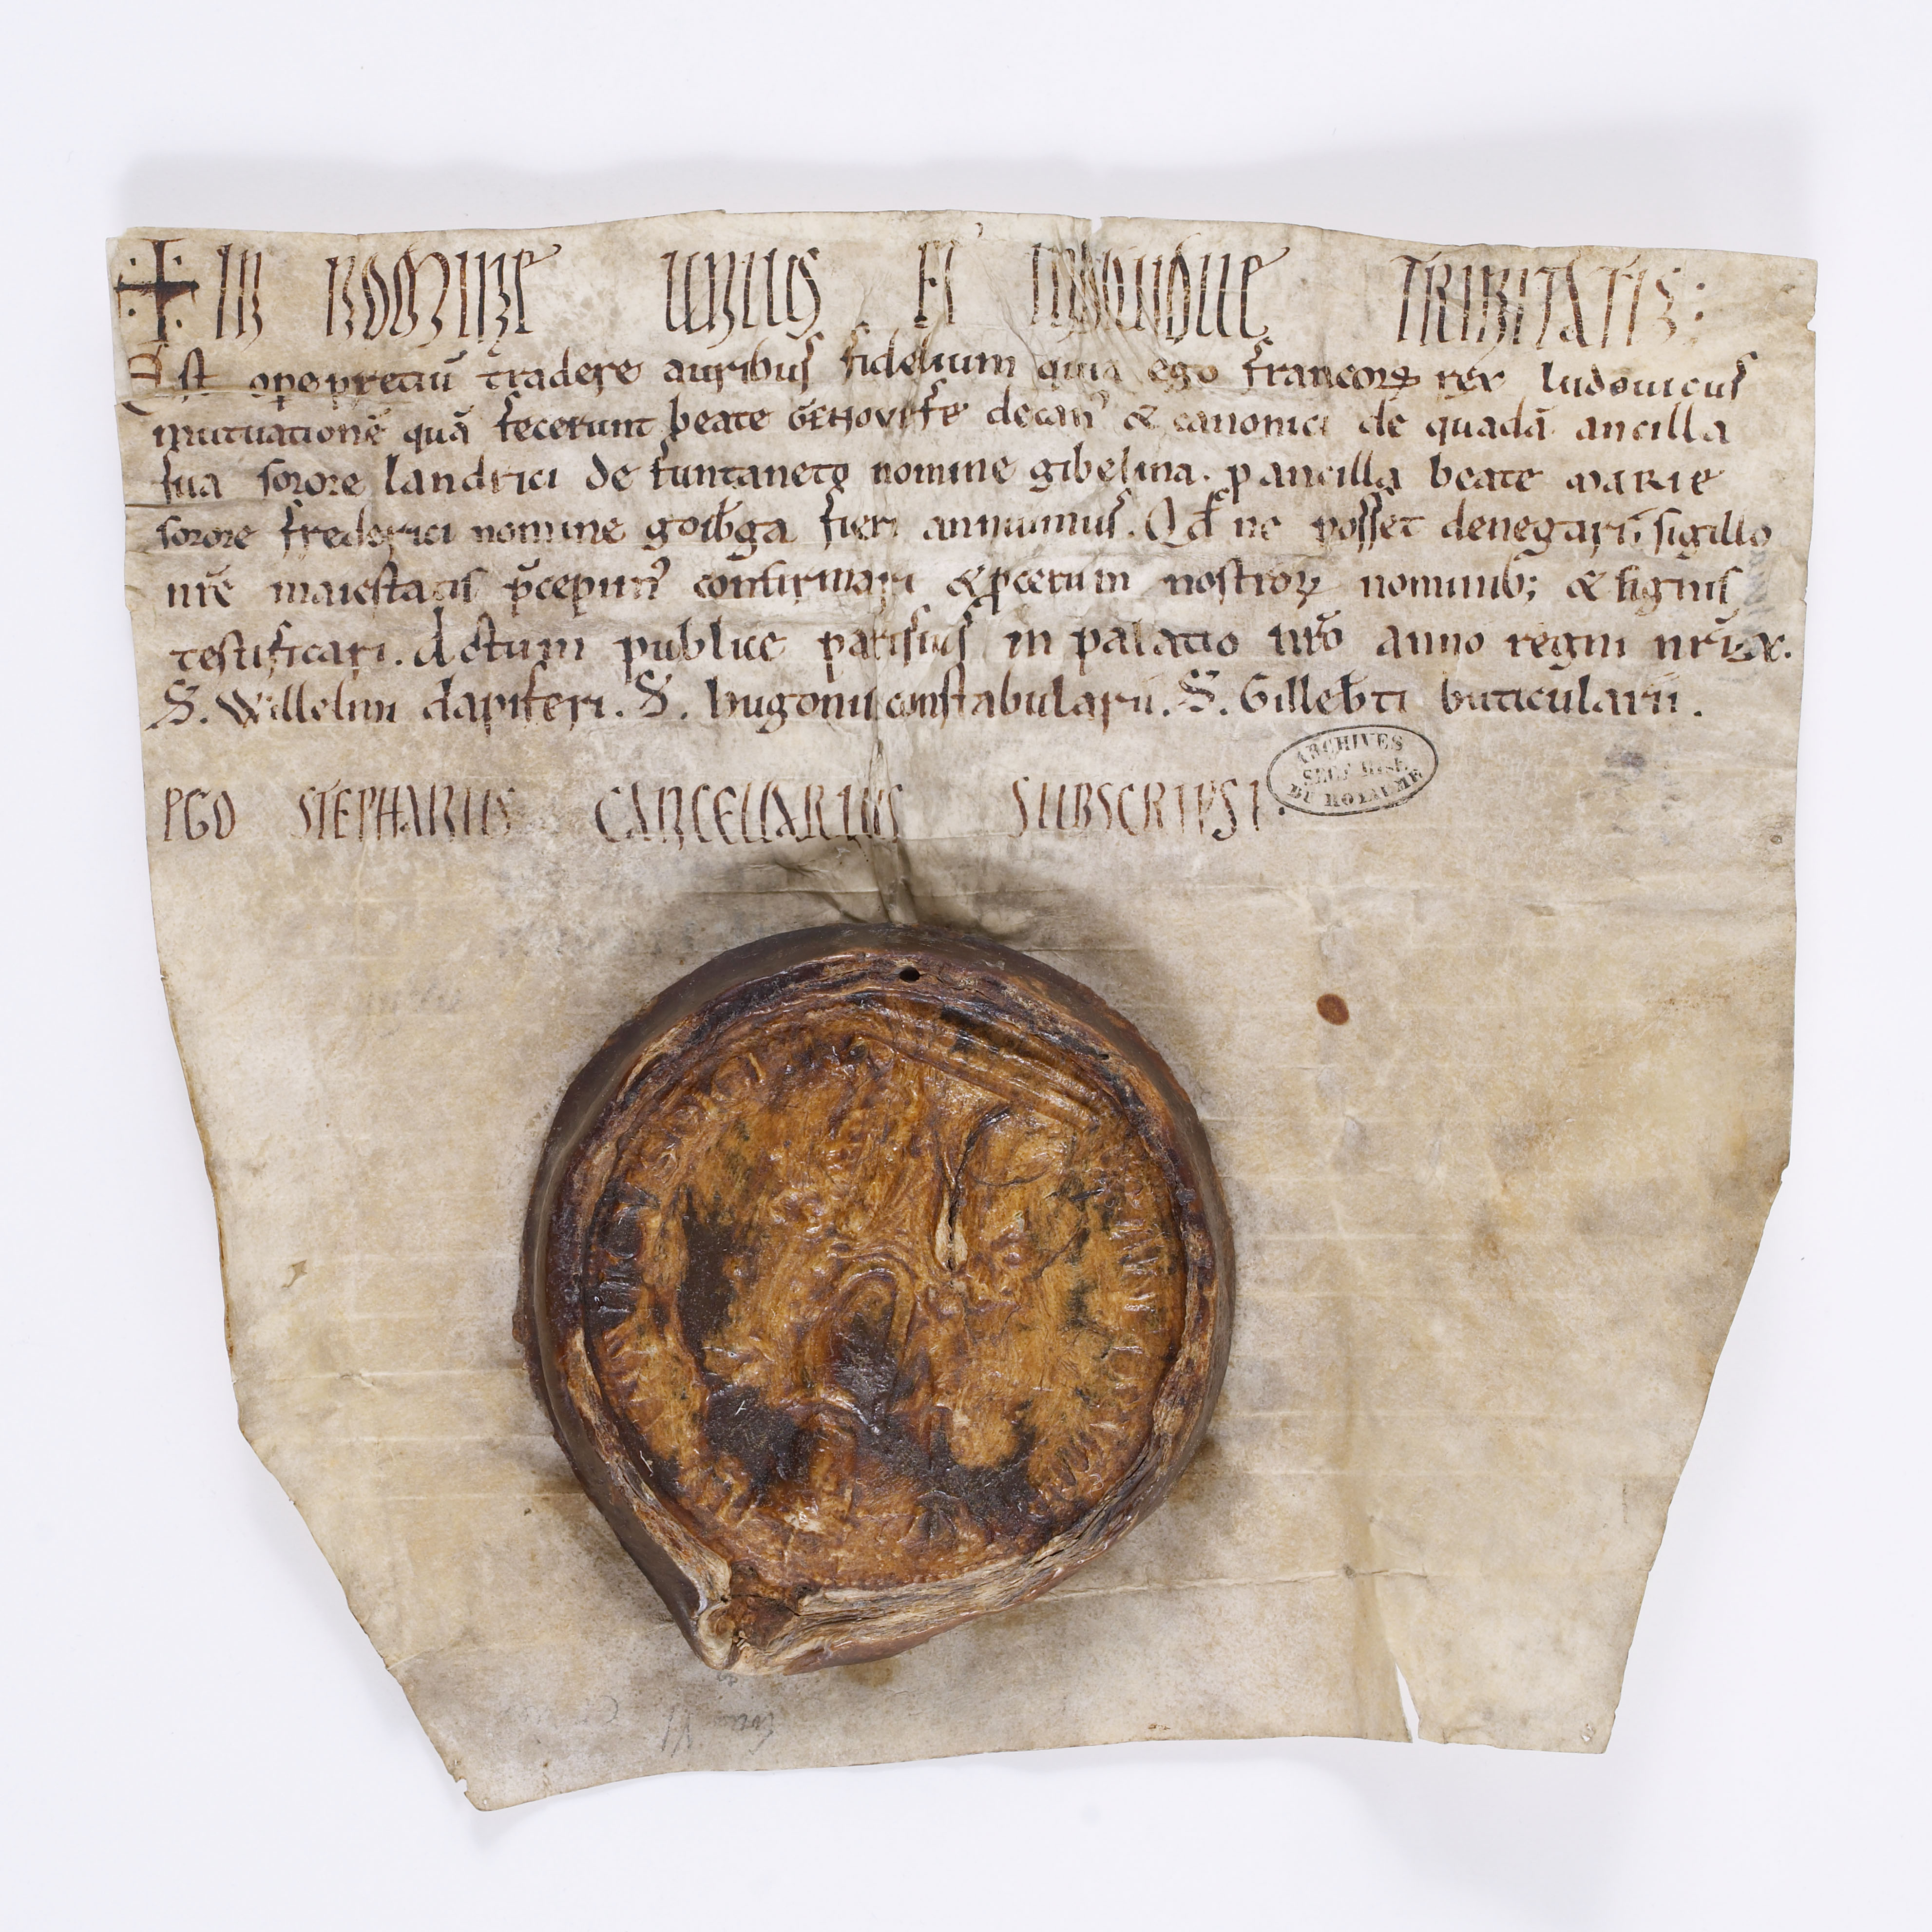 IN NOMINE UNIUS ET INDIVIDUE TRINITATIS:
Est ope pretiū tradere auribus fidelium quia ego francorꝝ rex ludouicus
mutuationē quā fecerunt beate GENOVEFE decan᾽ & canonici de quadā ancilla
sua sorore landrici de funtaneto nomine gibelina. ꝑ ancilla beate MARIE
sorore frederici nomine goib̄ga fieri annuimus. Qd̄ ne posset denegari, sigillo
nr̄e maiestatis p̄cepim᾽ confirmari & ꝓcerum nostroꝝ nominib; & signis
testificari. Actum publice parisius in palacio nr̄o anno regni nr̄i
S. Willelmi dapiferi. S. hugonis constabularii. S. Gilleb̄ti buticularii.
EGO STEPHANUS CANCELLARIUS SUBSCRIPSI.
ARCHIVES
SECT. HIST.
DU ROYAUME